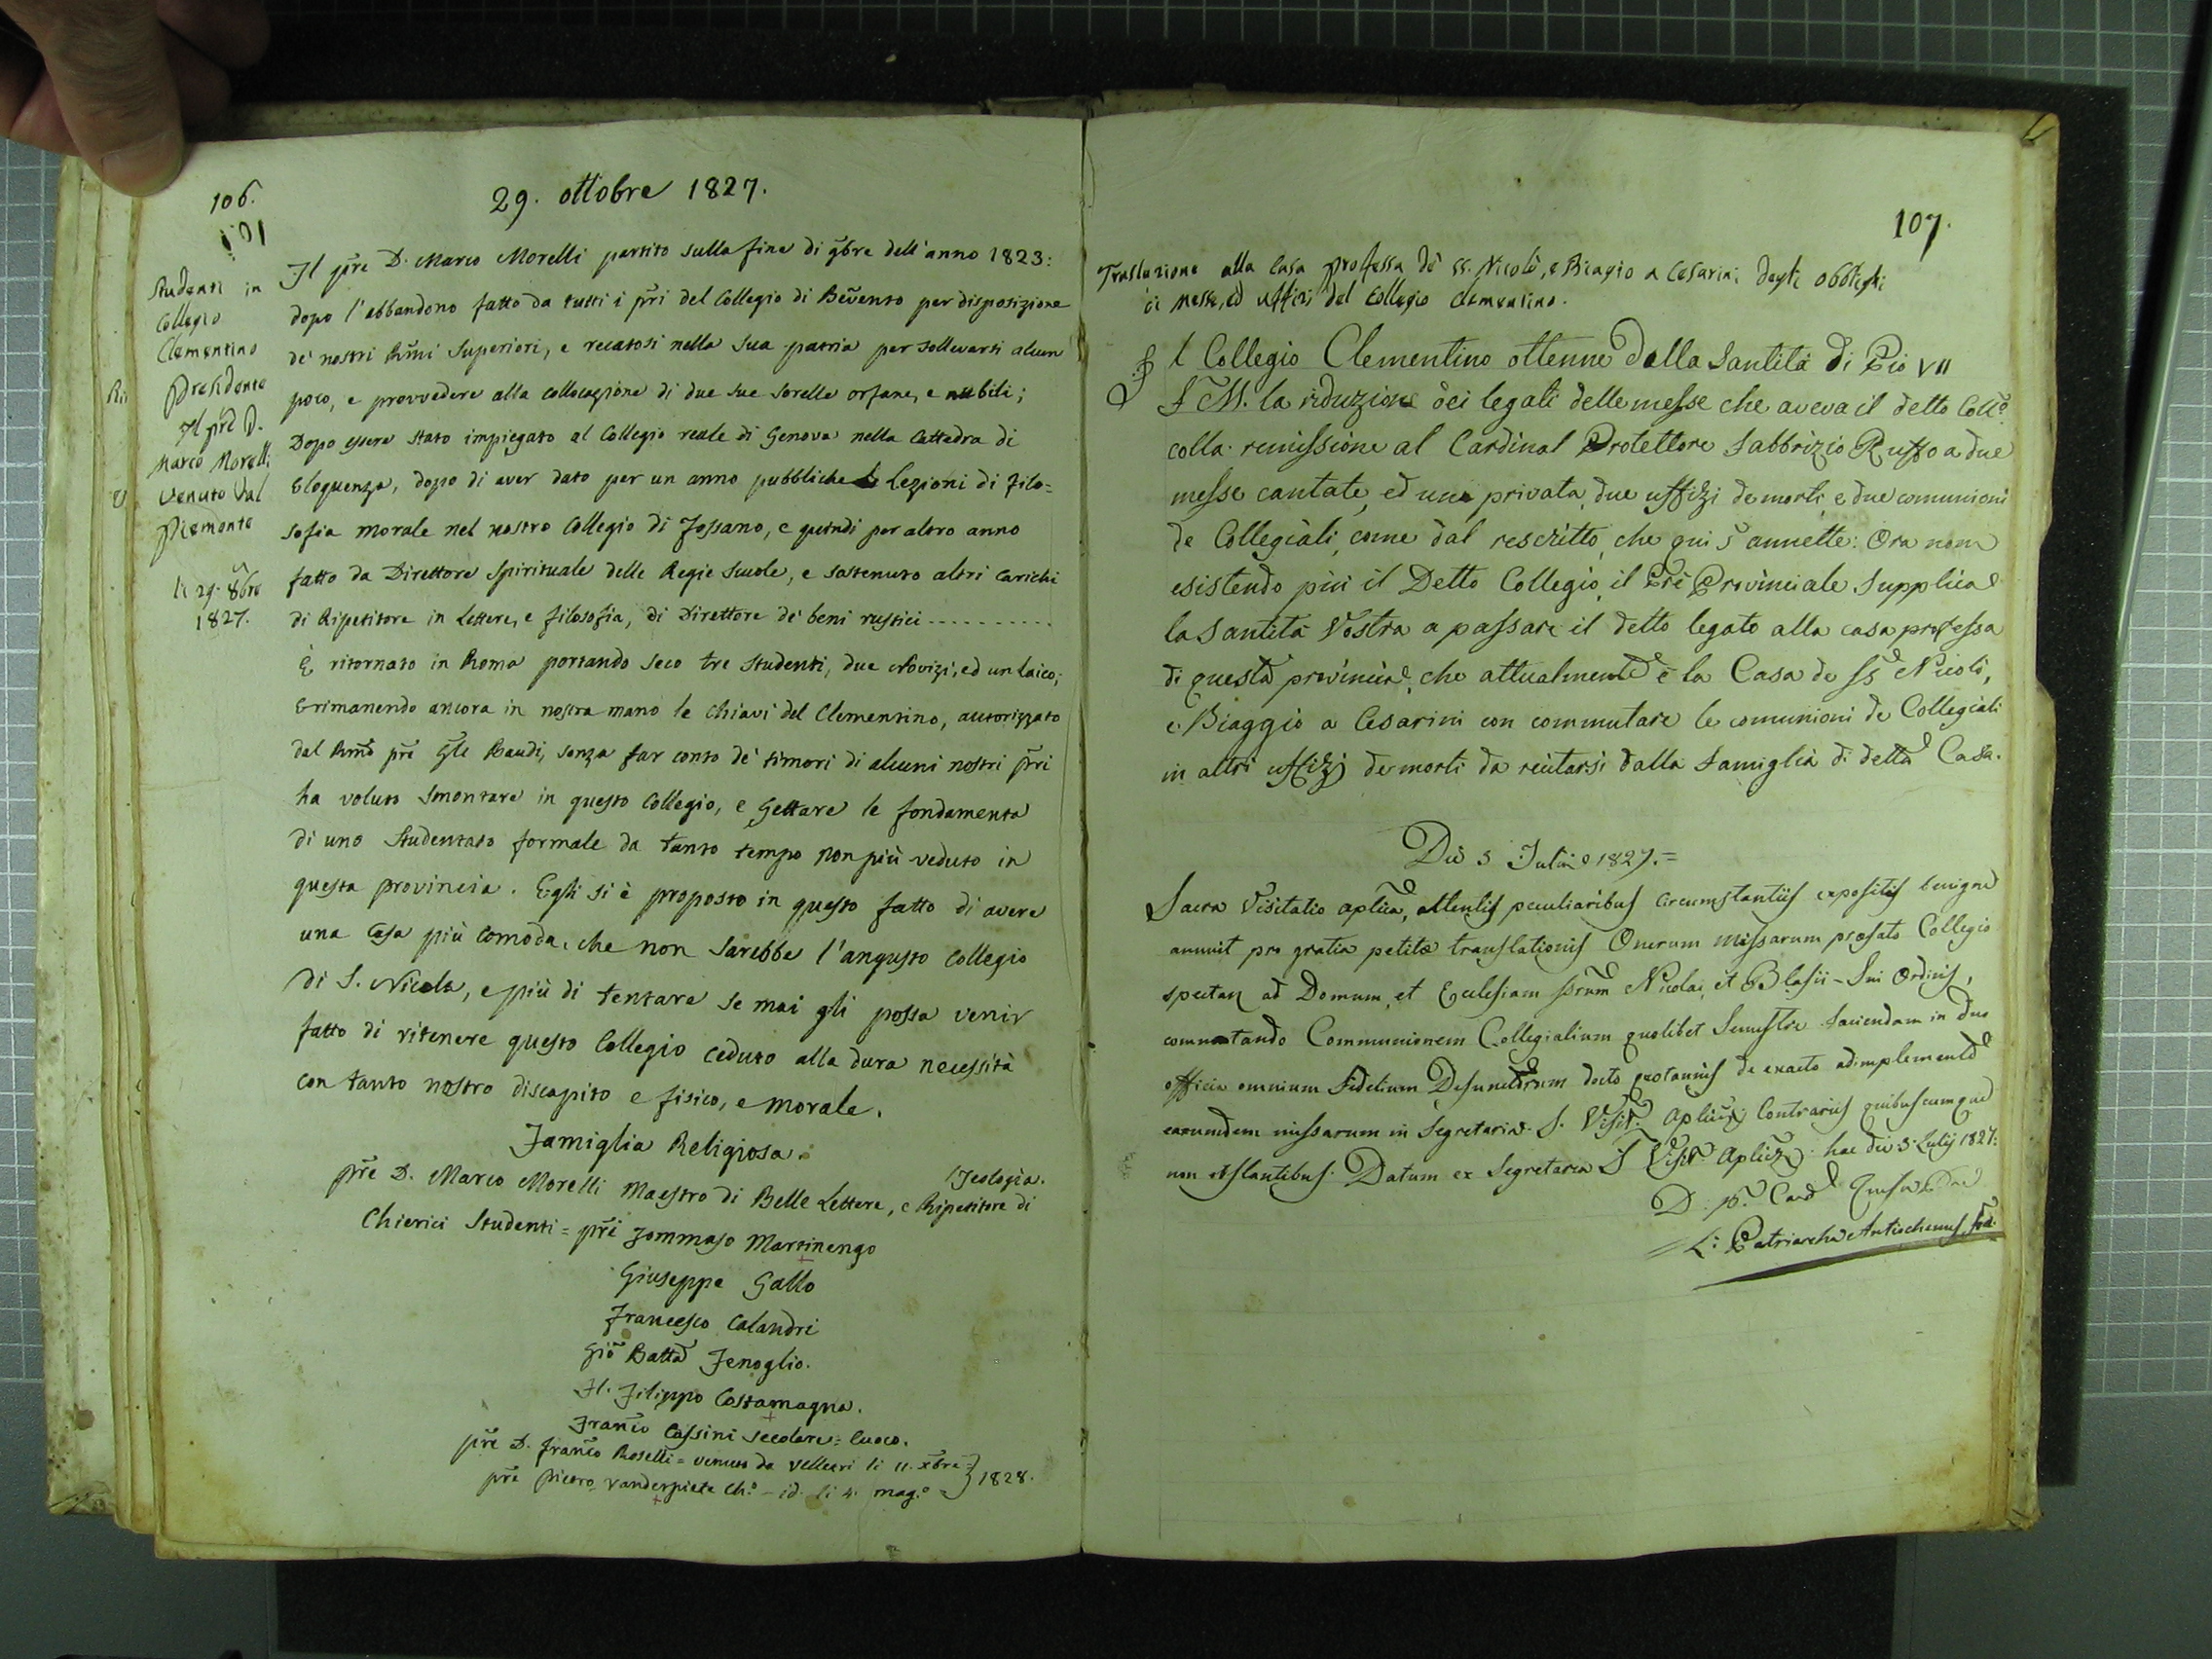 106.
29. ottobre 1827.
Studenti in
Collegio
Clementino
Presidente
Il pr̃e D.
Marco Morelli
venuto dal
Piemonte
li 29. 8bre
1827.
Il pr̃e D. Marco Morelli partito sulla fine di 9bre dell'anno 1823:
dopo l'abbandono fatto da tutti i pr̃i del Collegio di Beñvento per disposizione
de' nostri Rm̃i Superiori, e recatosi nella sua patria per sollevarsi alcun
poco, e provvedere alla collocazione di due sue sorelle orfane, e nubili;
Dopo essere stato impiegato al Collegio reale di Genova nella Cattedra di
Eloquenza, dopo di aver dato per un anno pubbliche Lezioni di Filo=
sofia morale nel nostro Collegio di Fossano, e quindi per altro anno
fatto da Direttore Spirituale delle Regie Scuole, e sostenuto altri carichi
di Ripetitore in Lettere, e filosofia, di Direttore de' beni rustici ..........
È ritornato in Roma portando seco tre Studenti, due Novizi, ed un Laico;
E rimanendo ancora in nostra mano le chiavi del Clementino, autorizzato
dal Rm̃o pr̃e Gl̃e Baudi, senza far conto de' timori di alcuni nostri pr̃ri
ha voluto smontare in questo Collegio, e gettare le fondamenta
di uno Studentato formale da tanto tempo non più veduto in
questa provincia. Egli si è proposto in questo fatto di avere
una Casa più comoda, che non sarebbe l'angusto Collegio
di S. Nicola, e più di tentare se mai gli possa venir
fatto di ritenere questo Collegio ceduto alla dura necessità
con tanto nostro discapito e fisico, e morale.
Famiglia Religiosa.
pr̃e D. Marco Morelli Maestro di Belle Lettere, e Ripetitore di Teologia.
Chierici Studenti = pr̃i Tommaso Martinengo
Giuseppe Gallo
Francesco Calandri
Gio Batta Fenoglio.
Fl. Filippo Costamagna.
Franc̃o Cassini secolare = Cuoco.
pr̃e D. Franc̃o Roselli = venuto da Velletri li 11. xbre =
pr̃e Pietro Vanderpiete Ch.º - id. li 4. mag.º = } 1828.
107.
Traslazione alla Casa professa de' SS. Nicolò, e Biagio a Cesarini degli obblighi
di messe, ed uffizi del Collegio Clementino.
Il Collegio Clementino ottenne dalla Santità di Pio VII
F. M. la riduzione dei legati delle messe che aveva il detto Coll.º
colla remissione al Cardinal Protettore Fabbrizio Ruffo a due
messe cantate, ed una privata, due uffizi de morti, e due comunioni
de Collegiali, come dal rescritto, che qui s'annette: Ora non
esistendo più il Detto Collegio, il Pr̃e Provinciale supplica
la Santità Vostra a passare il detto legato alla casa professa
di questa provincia, che attualmente è la Casa de SS. Nicolò,
e Biaggio a Cesarini con commutare le comunioni de Collegiali
in altri uffizj de morti da recitarsi dalla Famiglia di detta Casa.
Die 3 Julii 1827. =
Sacra Visitatio aplica, attentis peculiaribus circumstantiis expositis benigne
annuit pro gratia petitæ translationis Onerum missarum præfato Collegio
spectan ad Domum, et Ecclesiam ssrum Nicolai, et Blasii - Sui Ordinis,
commutando Communionem Collegialium quolibet Semestre faciendam in duo
officia omnium Fidelium Defunctorum docto quotannis de exacto adimplemento
earumdem missarum in Segretaria S. Visit. Aplicæ Contrariis quibuscumque
non obstantibus. Datum ex Segretaria S. Visit. Aplicæ hac die 3 Julij 1827.
L: Patriarcha Antiochenus